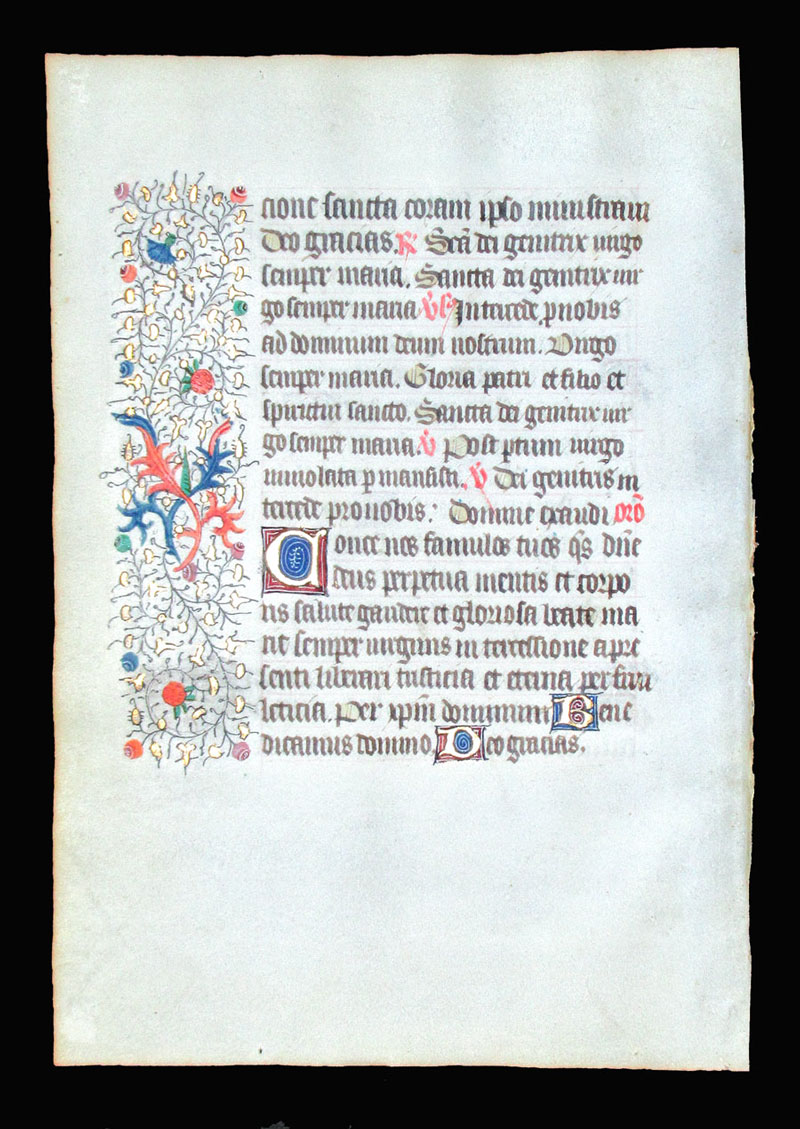 cione sancta coram ipso ministraui
Deo gracias. R̃ Scā dei genitrix uirgo
semper maria. Sancta dei genitrix uir
go semper maria v̄s Intercede pronobis
ad dominum deum nostrum. Virgo
semper maria. Gloria patri et filio et
spiritui sancto. Sancta dei genitrix uir
go semper maria. v̄ Post ptum uirgo
inuiolata pmansisti. v̄ Dei genitris in
tercede pronobis: Domine exaudi orō
Conce nos famulos tuos q̄s dn̄e
deus perpetua mentis et corpo
ris salute gaudere et gloriosa beate ma
rie semper uirginis in tercessione a pre
senti liberari tristicia et eterna perfrui
leticia. Per xp̄m dominum Bene
dicamus domino. Deo gracias.